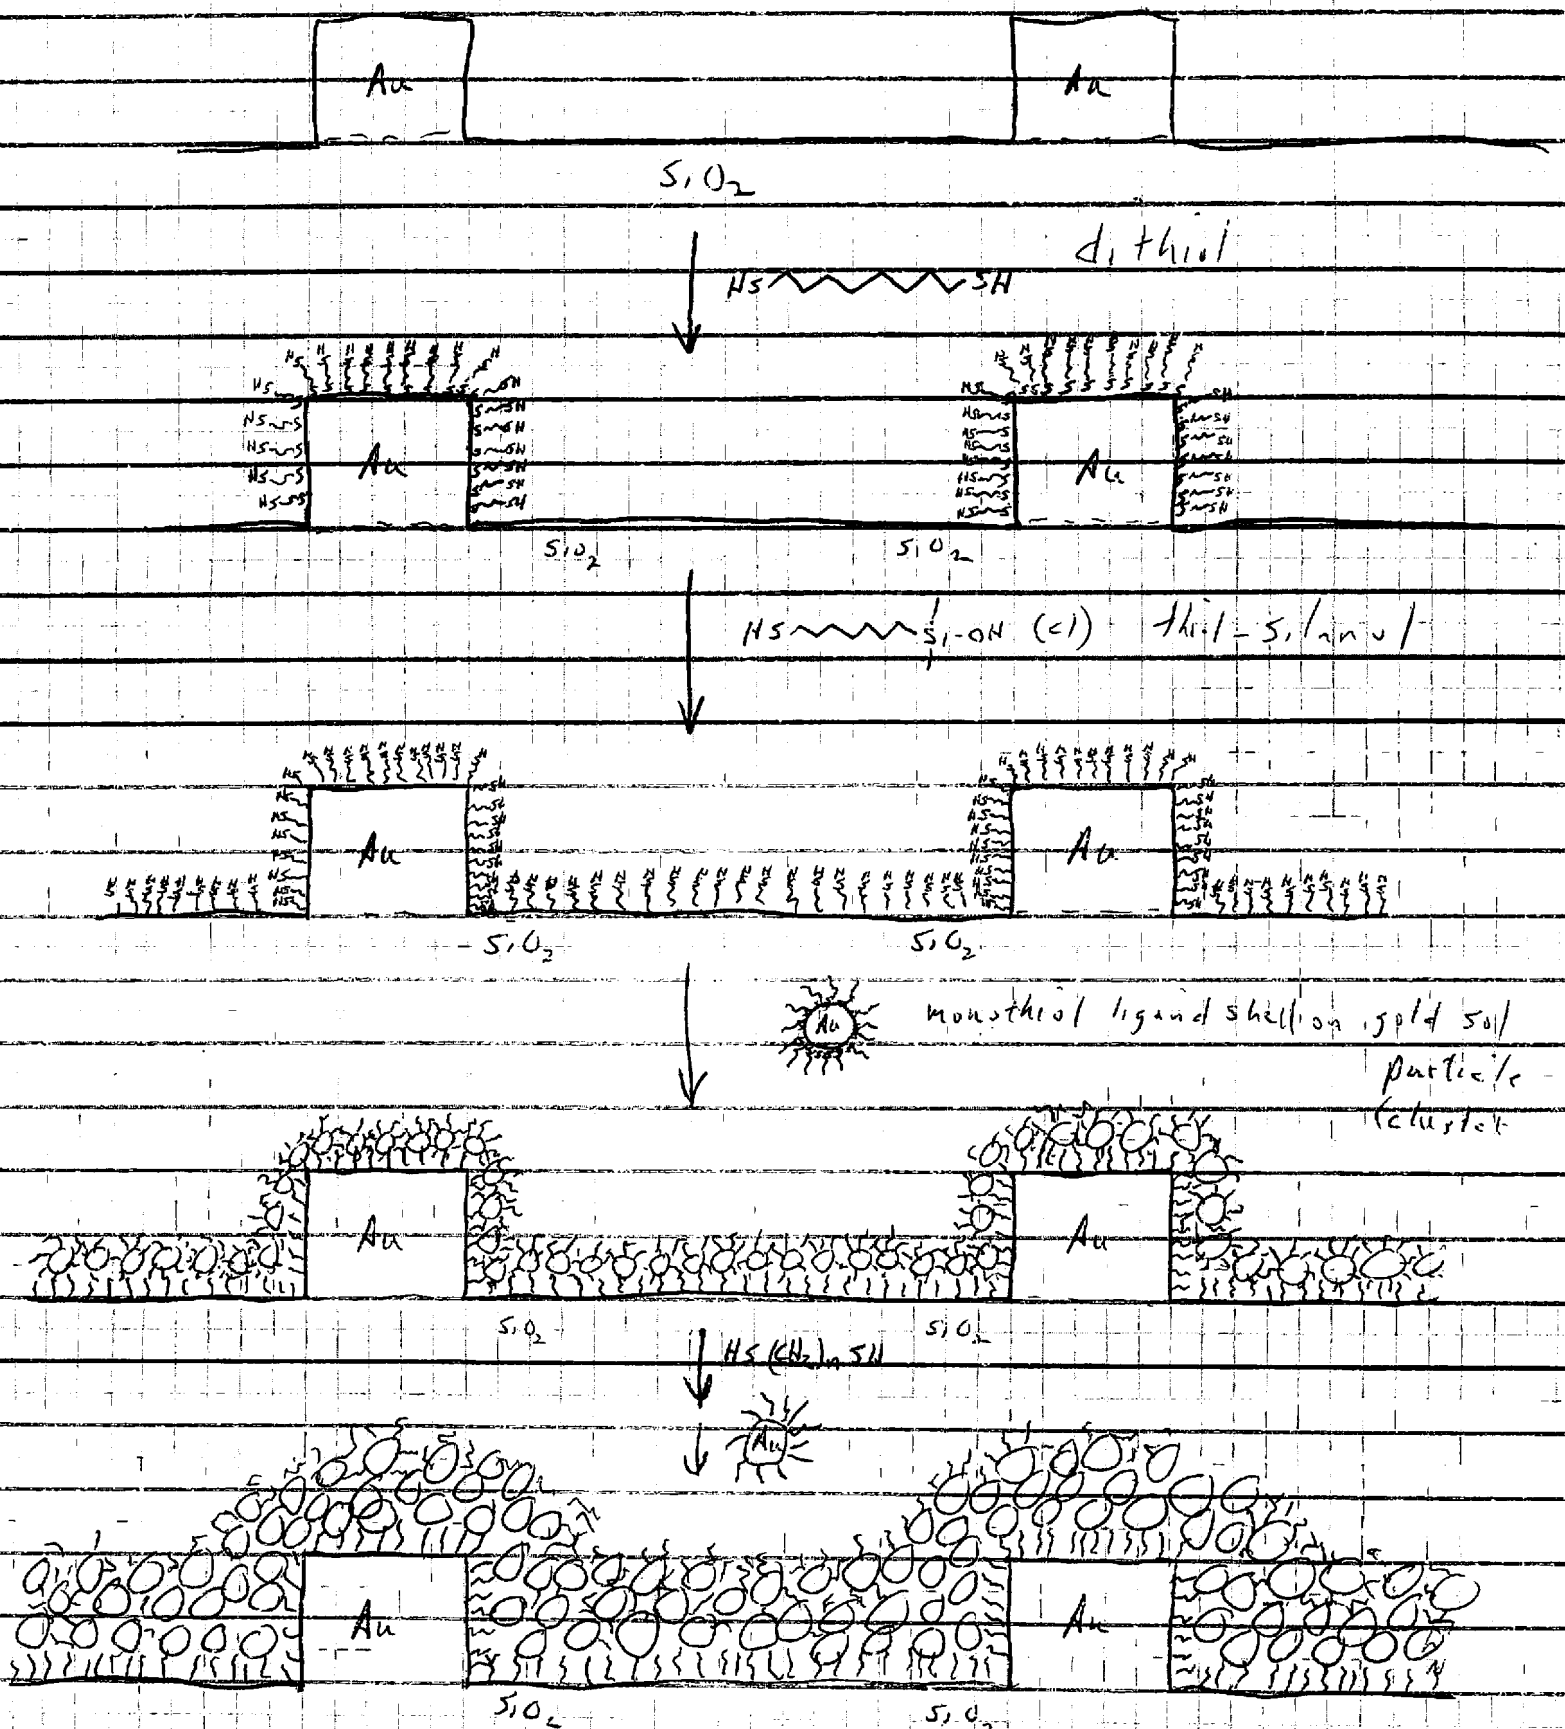 Au Au
SiO2
dithiol
HS SH
Au Au
SiO2 SiO2
HS Si-OH (Cl) thiol-silanol
Au Au
SiO2 SiO2
Au monothiol ligand shell on gold sol
particle
(cluster
Au Au
SiO2 SiO2
HS(CH2)nSH
Au
Au Au
SiO2 SiO2